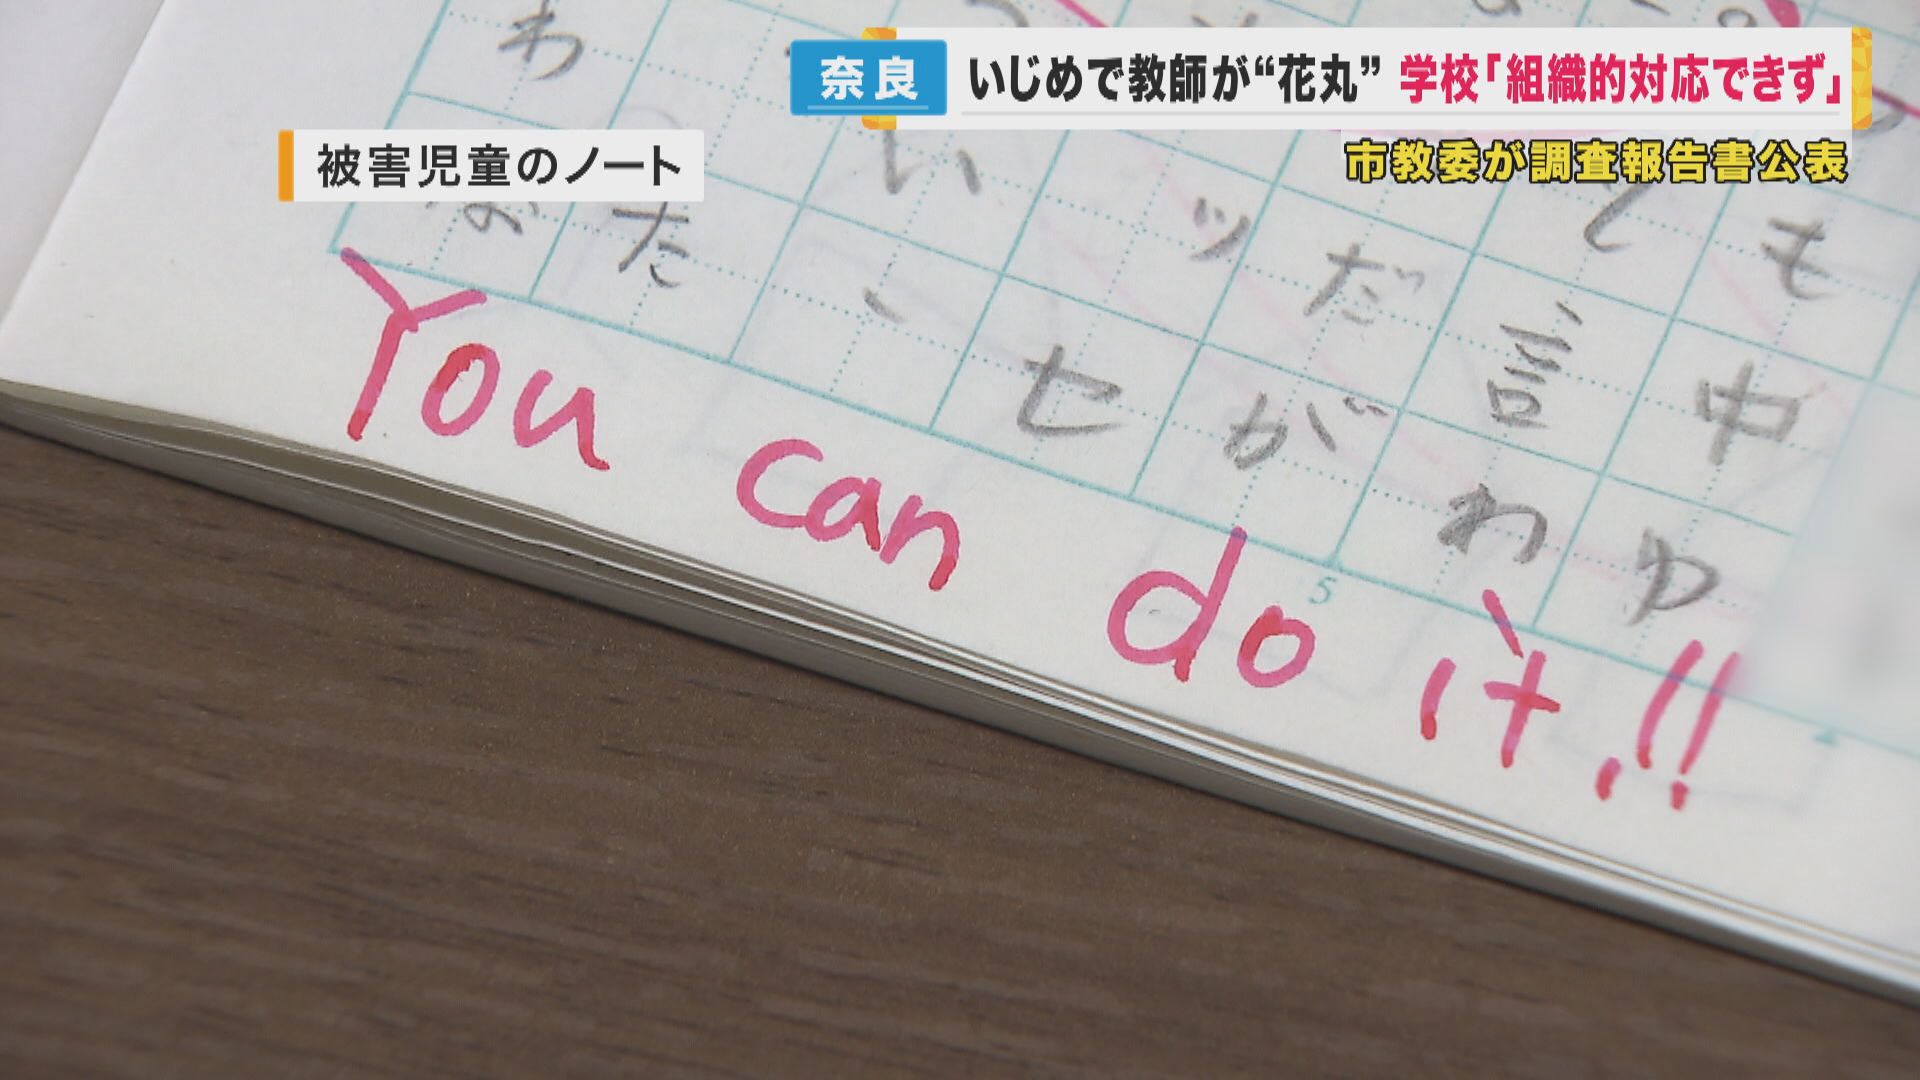 奈良
いじめで教師が“花丸” 学校「組織的対応できず」
市教委が調査報告書公表
被害児童のノート
も中ゆ
言わ
だが
ッセ
い
た
わ
You can do it!!
5